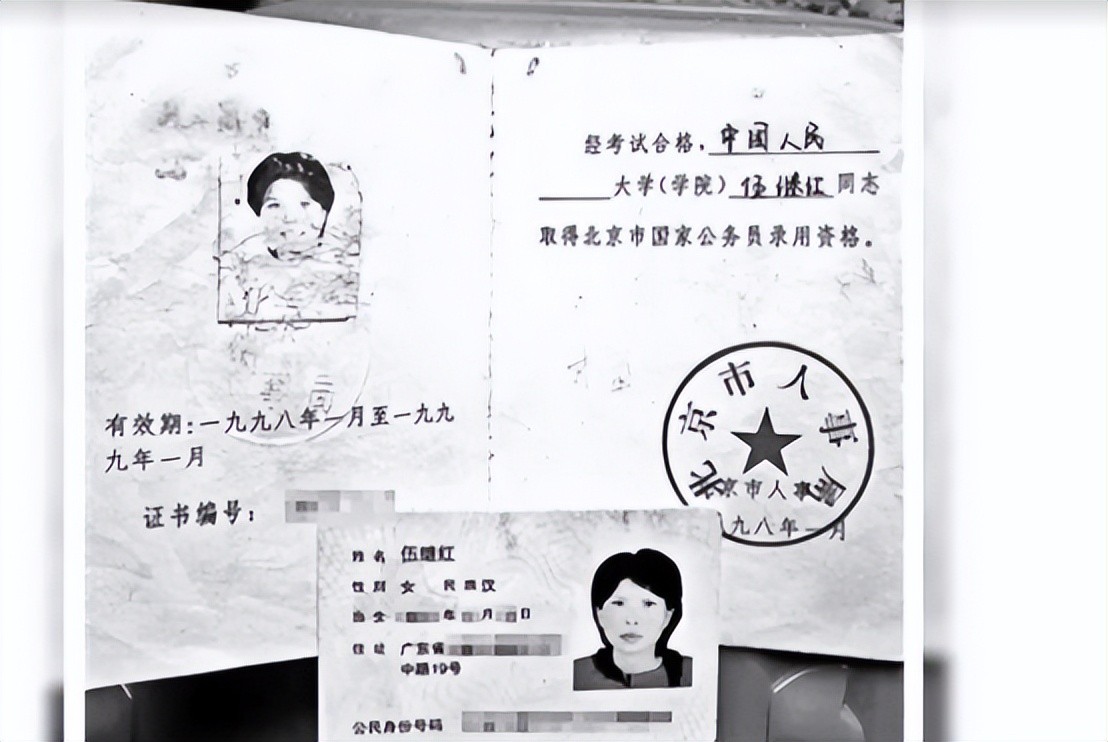 有效期：一九九八年一月至一九九
九年一月
证书编号：
经考试合格，中国人民
大学（学院）伍继红同志
取得北京市国家公务员录用资格。
北京市人事局
京市人事
九八年一月
姓名 伍继红
性别 女 民族 汉
出生 年 月 日
住址 广东省
中路19号
公民身份号码